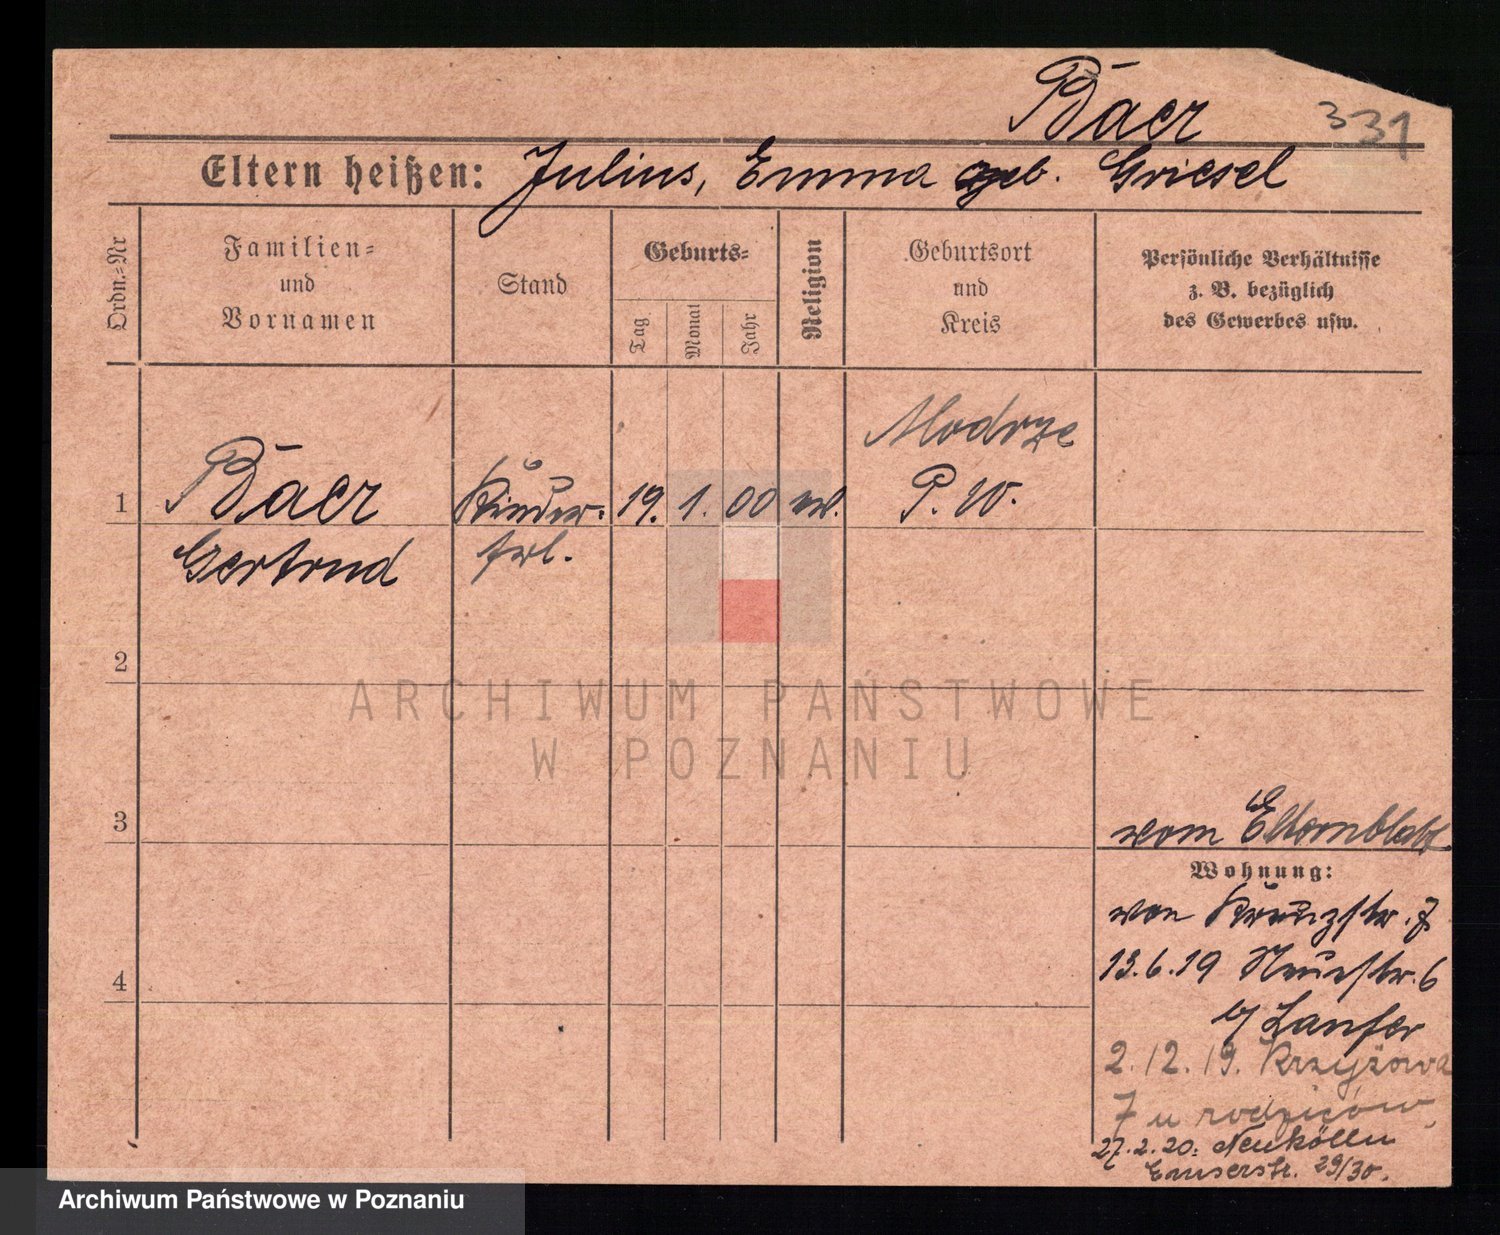 Baer
331
Eltern heißen: Julius, Emma geb. Griesel
Ordn.=Nr
Familien=
und
Vornamen
Stand
Geburts=
Tag
Monat
Jahr
Religion
Geburtsort
und
Kreis
Persönliche Verhältnisse
z. B. bezüglich
des Gewerbes usw.
1
Baer
Gertrud
Kinder-
frl.
19. 1. 00
ev.
Modrze
P. W.
2
3
4
vom Elternblatt
Wohnung:
von Kreuzstr. 7
13.6.19 Neuestr. 6
b/ Laufer
2.12.19. Krzyżowa
7 u rodziców
27.2.20: Neukölln
Emserstr. 29/30.
ARCHIWUM PAŃSTWOWE
W POZNANIU
Archiwum Państwowe w Poznaniu